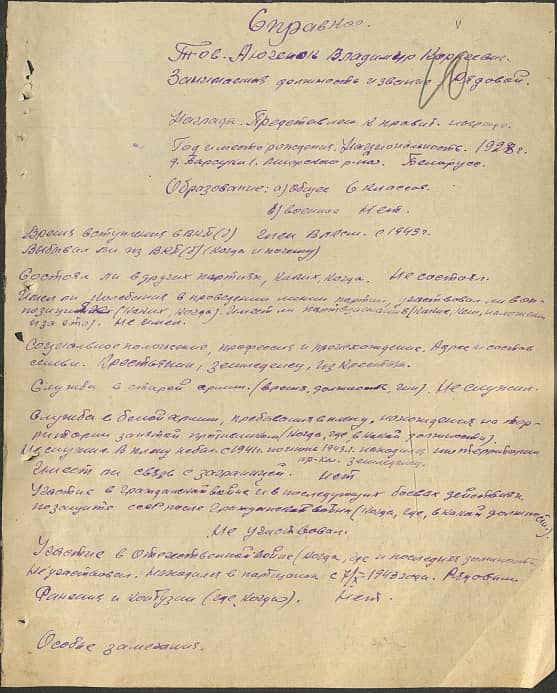 Справка.
Тов. Владимир
Занимаемая должность и звание Рядовой.
Награды. Представлен к правит. награде.
Год и место рождения. Национальность. 1928 г.
д. Барсуки р-на. Беларусс.
Образование: а) общее 6 классов.
б) военное Нет.
Время вступления в ВКП(б) Член с 1943 г.
Выбывал ли из ВКП(б) (когда и почему)
Состоял ли в других партиях, каких, когда. Не состоял.
Имел ли колебания в проведении линии партии, участвовал ли в оп-
позициях (каких, когда). Имеет ли партвзыскания (какие, кем, наложены
и за что). Не имел.
Социальное положение, профессия и происхождение. Адрес и состав
семьи. Крестьянин, земледелец, из крестьян.
Служба в старой армии. (время, должность, чин). Не служил.
Служба в белой армии, пребывание в плену, нахождение на тер-
ритории занятой противником (когда, где, в какой должности).
Не служил. В плену не был. с 1941 г. по 1943 г. находился на территории
пр-ка. земледелец.
Имеет ли связь с заграницей. Нет
Участие в гражданской войне и в последующих боевых действиях
по защите СССР после гражданской войны (когда, где, в какой должности).
Не участвовал.
Участие в Отечественной войне (когда, где и последняя должность)
Не участвовал. Находился в партизанах с 1943 года. Рядовым.
Ранения и контузии (где, когда). Нет.
Особые замечания.